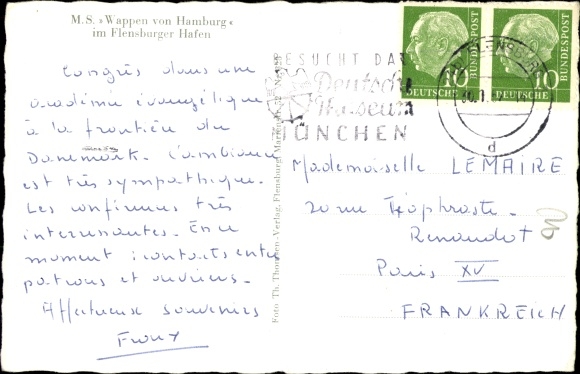 M.S. »Wappen von Hamburg«
im Flensburger Hafen
Congrès dans une
académie évangélique
à la frontière du
Danemark. L'ambiance
est très sympathique.
Les conférences très
intéressantes. En ce
moment : contacts entre
patrons et ouvriers.
Affectueux souvenirs
Foto Th. Thomsen-Verlag, Flensburg
BESUCHT DAS
Deutsche
Museum
MÜNCHEN
FLENSBURG
d
10
DEUTSCHE BUNDESPOST
10
DEUTSCHE BUNDESPOST
Mademoiselle LEMAIRE
20 rue Téophraste
Renaudot
Paris XV
FRANKREICH